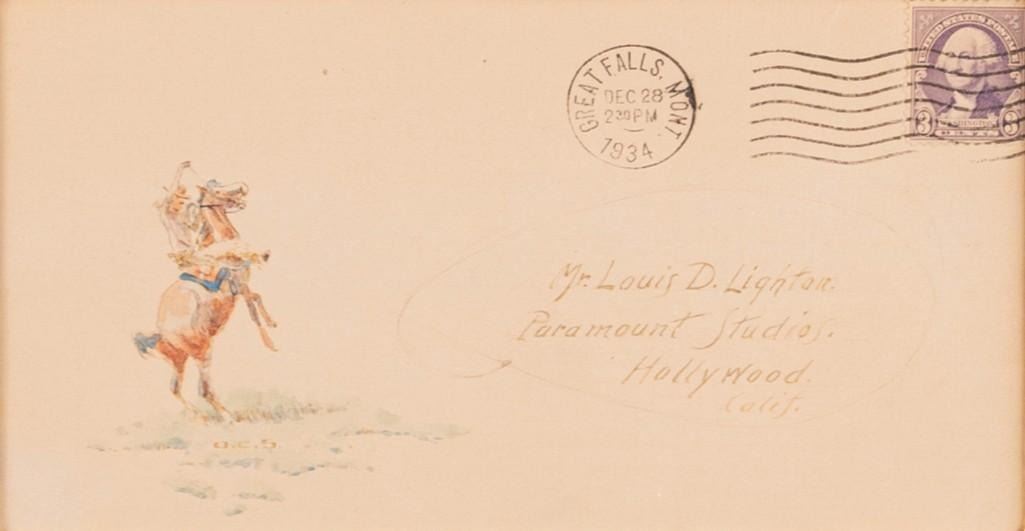 UNITED STATES POSTAGE
3 WASHINGTON 3
GREAT FALLS, MONT.
DEC 28
2 30 PM
1934
Mr. Louis D. Lighton.
Paramount Studios.
Hollywood.
Calif.
O.C.S.